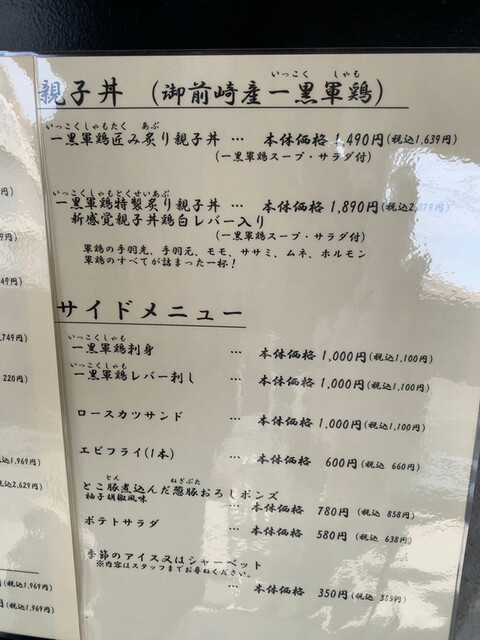 いっこく しゃも
親子丼 (御前崎産一黒軍鶏)
いっこくしゃもたく あぶ
一黒軍鶏匠み炙り親子丼 … 本体価格 1,490円(税込1,639円)
(一黒軍鶏スープ・サラダ付)
いっこくしゃもとくせいあぶ
一黒軍鶏特製炙り親子丼 … 本体価格 1,890円(税込2,079円)
新感覚親子丼鶏白レバー入り
(一黒軍鶏スープ・サラダ付)
軍鶏の手羽先、手羽元、モモ、ササミ、ムネ、ホルモン
軍鶏のすべてが詰まった一杯!
サイドメニュー
いっこくしゃも
一黒軍鶏刺身 … 本体価格 1,000円(税込1,100円)
いっこくしゃも
一黒軍鶏レバー刺し … 本体価格 1,000円(税込1,100円)
ロースカツサンド … 本体価格 1,000円(税込1,100円)
エビフライ(1本) … 600円(税込 660円)
とん ねぎぶた
とこ豚煮込んだ葱豚おろしポンズ
柚子胡椒風味
… 本体価格 780円(税込 858円)
ポテトサラダ … 本体価格 580円(税込 638円)
季節のアイス又はシャーベット
※内容はスタッフまでお尋ねください。
… 本体価格 350円(税込 385円)
749円)
220円)
税込1,969円)
税込2,629円)
(税込1,969円)
(税込1,969円)